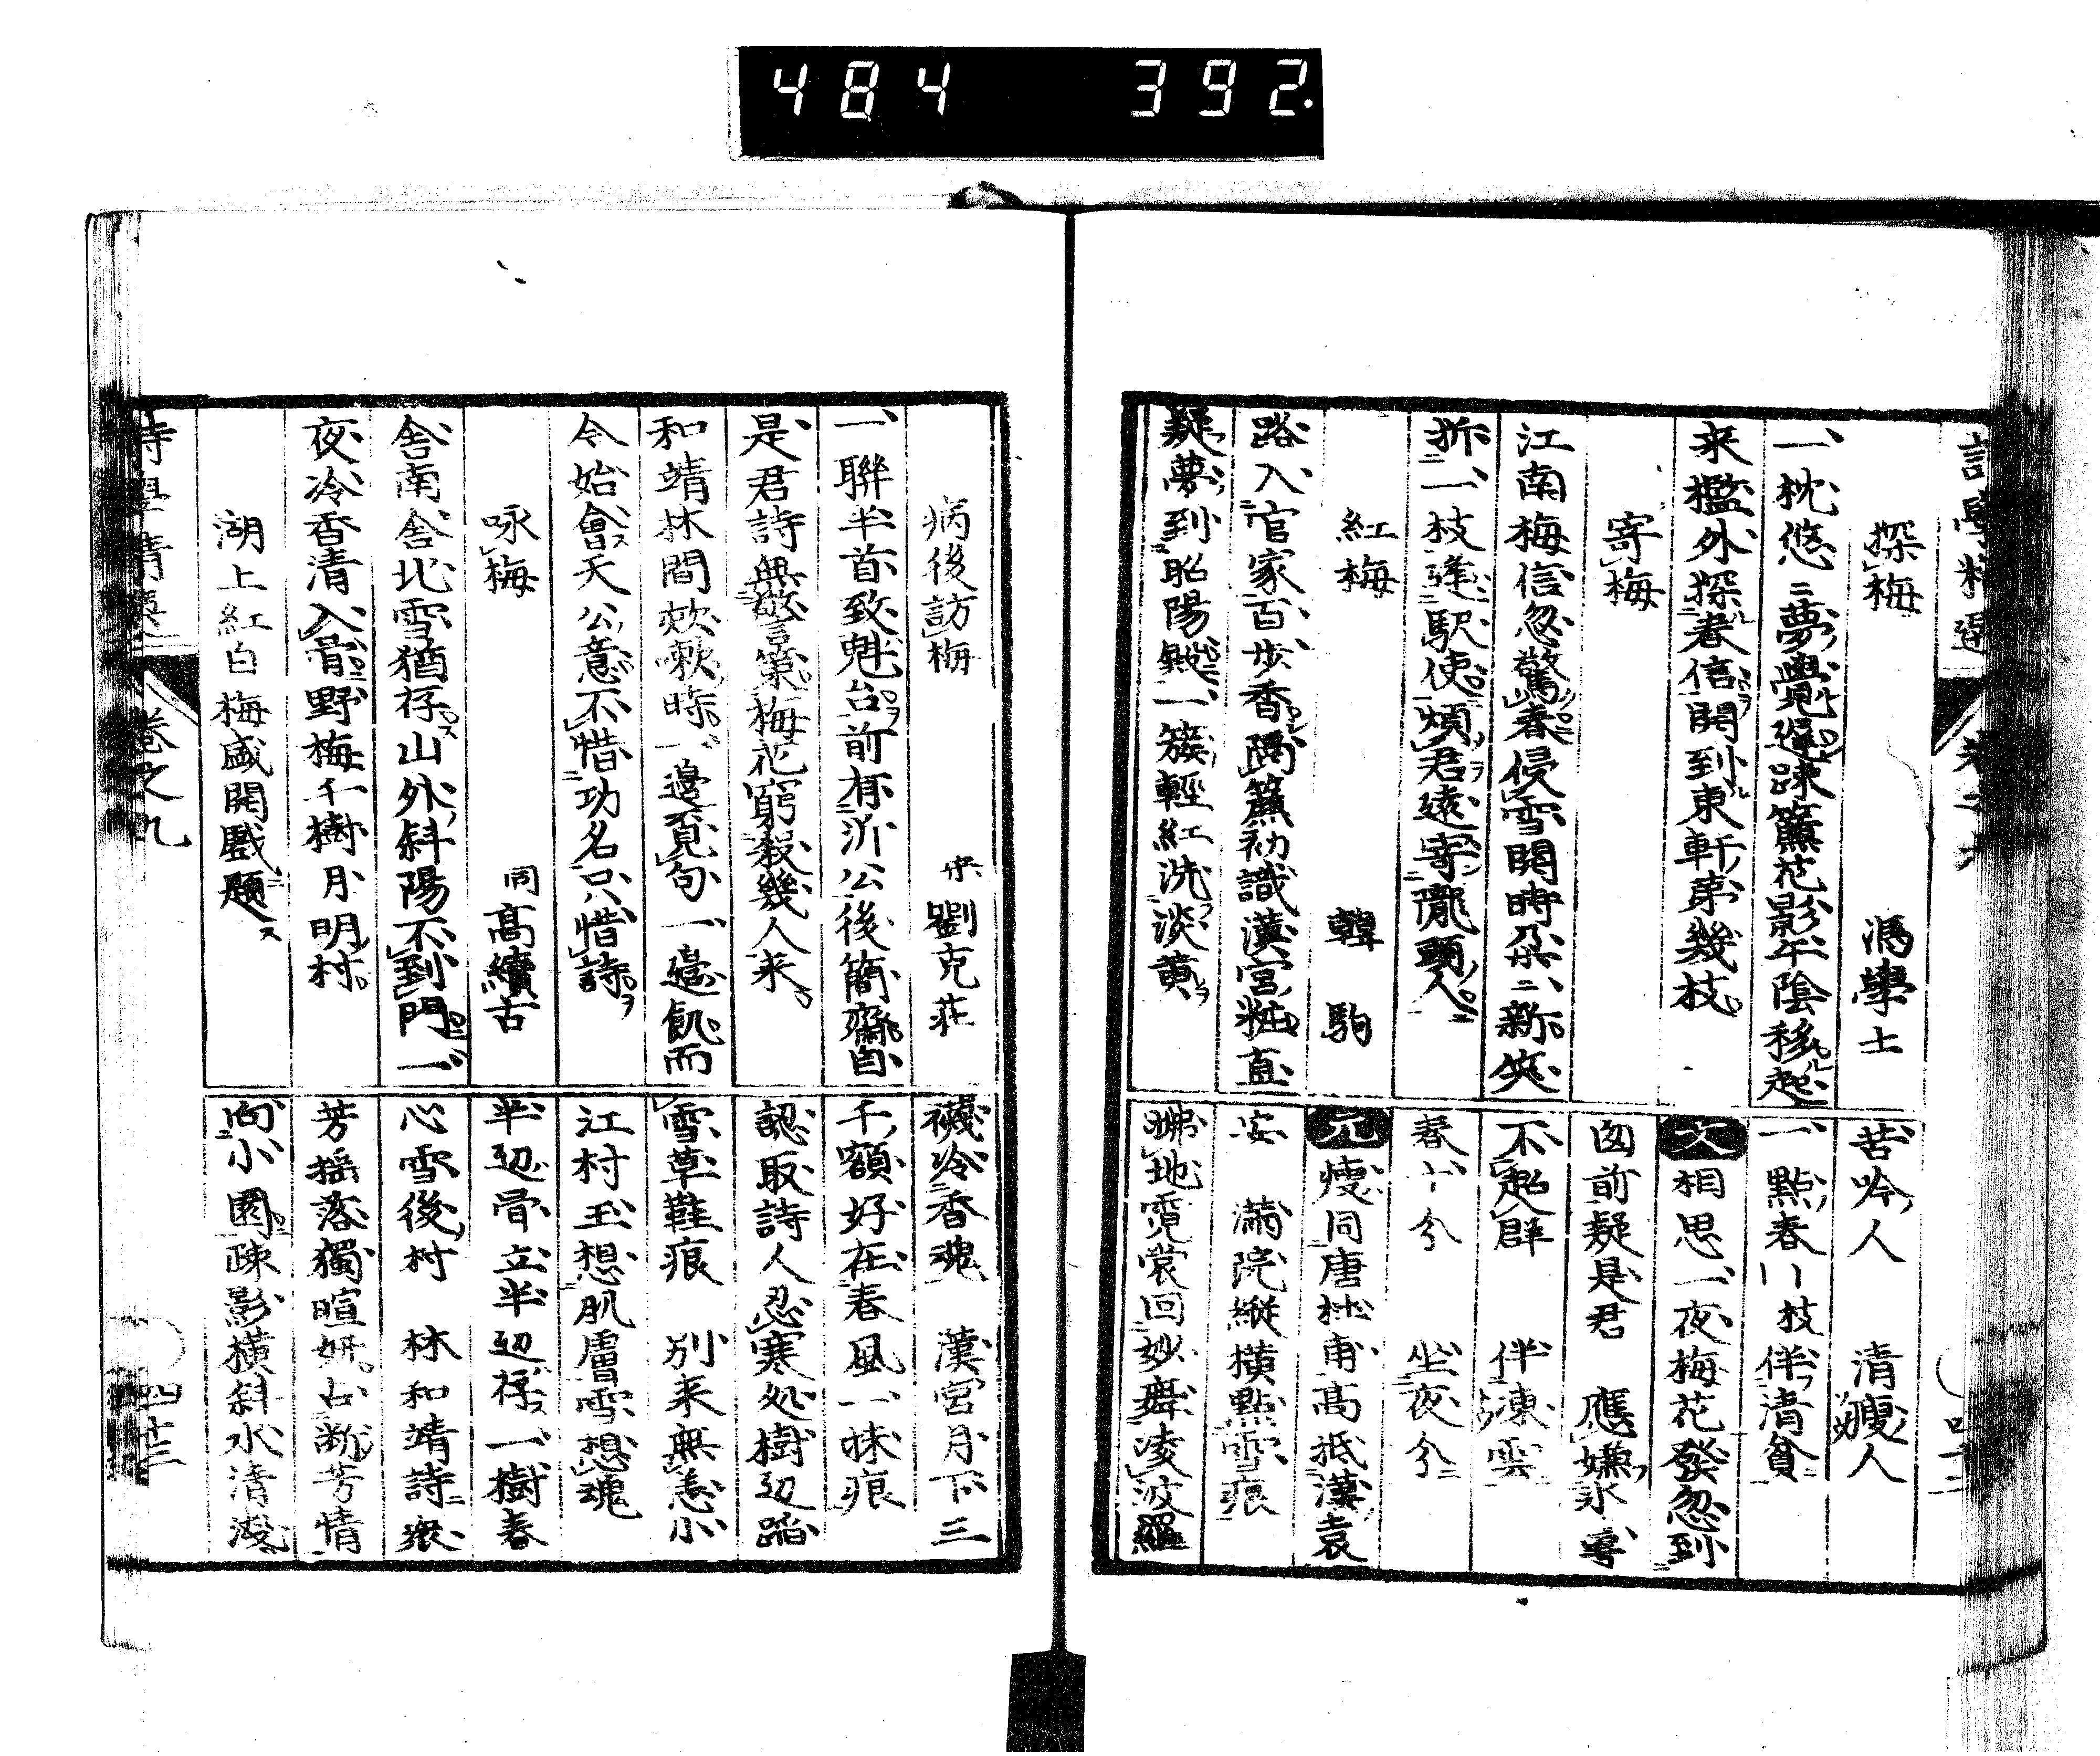 484 392.
探梅 馮學士
一枕悠二夢覺遲疎簾花影午陰移起
来檻外探春信開到東軒第幾枝
寄梅
江南梅信忽驚春侵雪開時朶二新笑
折一枝逢駅使煩君遠寄隴頭人
紅梅 韓駒
路入官家百歩香隔簾初識漢宮粧直
疑夢到昭陽殿一簇輕紅洗淡黄
苦吟人 清瘦人
一點春 枝伴清貧
大 相思一夜梅花發忽到
囱前疑是君 應嫌氷雪
不超群 伴凍雲
春十分 坐夜分
元 瘦同唐杜甫高抵漢袁
安 滿院縱橫點雪痕
拂地霓裳回妙舞凌波羅
病後訪梅 宋劉克莊
一聯半首致魁台前有沂公後簡齋自
是君詩無警策梅花窮殺幾人来
和靖林間欬嗽時一邊覓句一邊飢而
今始會天公意不惜功名只惜詩
咏梅 同高續古
舎南舎北雪猶存山外斜陽不到門一
夜冷香清入骨野梅千樹月明村
湖上紅白梅盛開戲題
襪冷香魂 漢宮月下三
千額好在春風一抹痕
認取詩人忍寒処樹辺踏
雪草鞋痕 別来無恙小
江村玉想肌膚雪想魂
半辺骨立半辺存一樹春
心雪後村 林和靖詩衆
芳揺落獨暄妍占断芳情
向小園疎影橫斜水清淺
卷之九
四十三